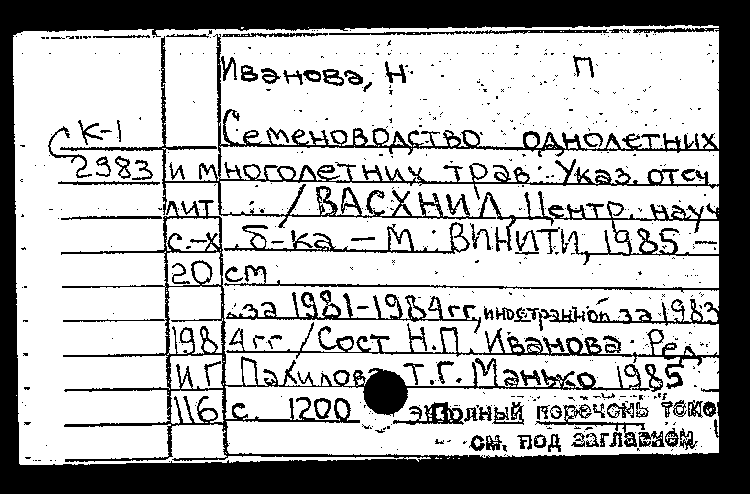 Иванова, Н П
К-1 Семеноводство однолетних
2983 и многолетних трав: Указ. отеч.
лит ... / ВАСХНИЛ, Центр. науч
с.-х. б-ка. — М.: ВИНИТИ, 1985. —
20 см.
..за 1981-1984гг, иностранной за 1983
1984гг. / Сост Н.П. Иванова; Ред.
И.Г Т.Г. Манько 1985
116 с. 1200 эк
Полный перечень томов
см. под заглавием